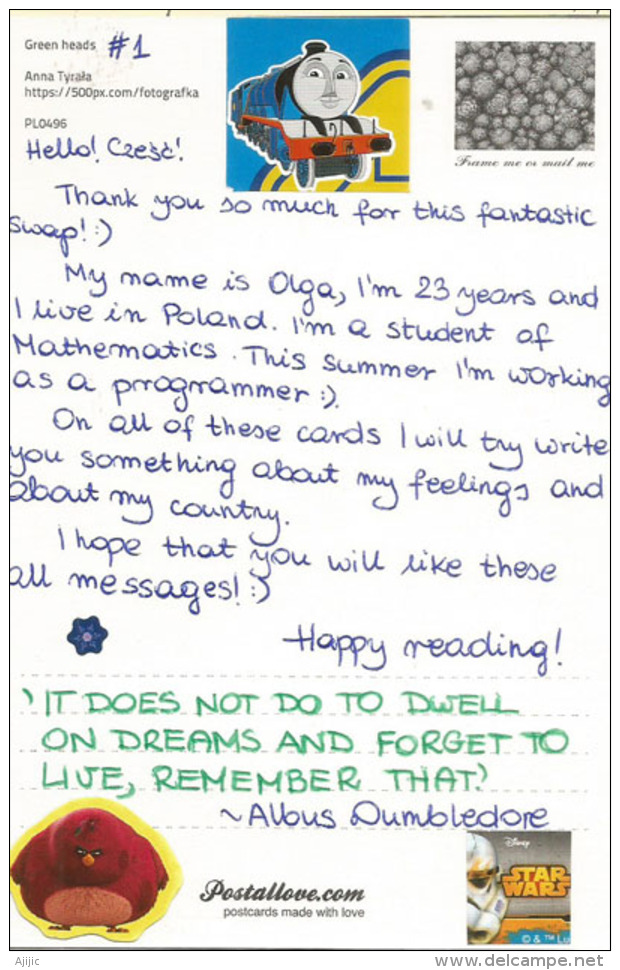 Green heads #1
Anna Tyrała
https://500px.com/fotografka
PL0496
Frame me or mail me
Hello! Cześć!
Thank you so much for this fantastic
swap! :)
My name is Olga, I'm 23 years and
I live in Poland. I'm a student of
Mathematics. This summer I'm working
as a prrogrammer :).
On all of these cards I will try write
you something about my feelings and
about my country.
I hope that you will like these
all messages! :)
Happy reading!
'IT DOES NOT DO TO DWELL
ON DREAMS AND FORGET TO
LIVE, REMEMBER THAT.'
~Albus Dumbledore
Postallove.com
postcards made with love
Disney
STAR
WARS
© & ™ Lu
Ajijic
www.delcampe.net